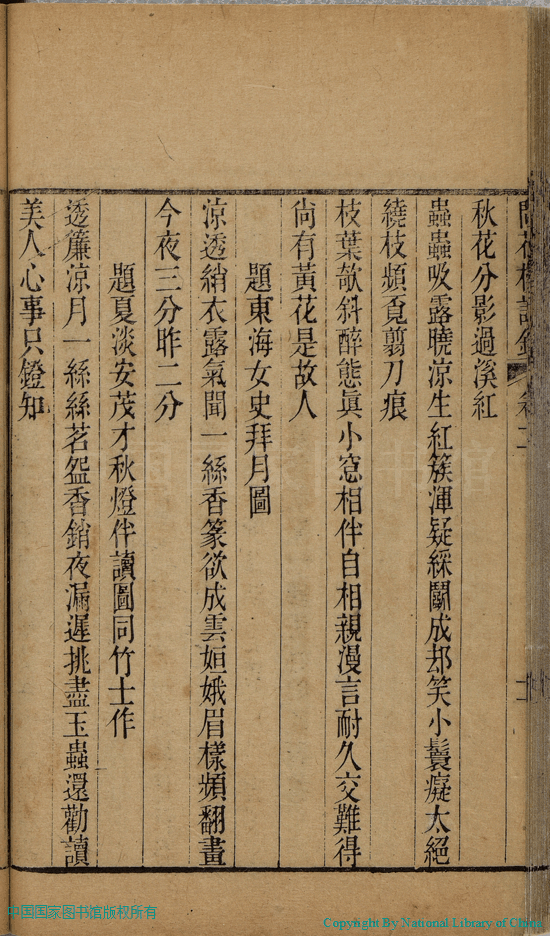 秋花分影過溪紅
蟲蟲吸露曉涼生紅簇渾疑綵鬬成却笑小鬟癡太絕
繞枝頻覓翦刀痕
枝葉欹斜醉態眞小窓相伴自相親漫言耐久交難得
尙有黃花是故人
題東海女史拜月圖
涼透綃衣露氣聞一絲香篆欲成雲姮娥眉樣頻翻畫
今夜三分昨二分
題夏淡安茂才秋燈伴讀圖同竹士作
透簾涼月一絲絲茗盌香銷夜漏遲挑盡玉蟲還勸讀
美人心事只鐙知
中国国家图书馆版权所有
Copyright By National Library of China